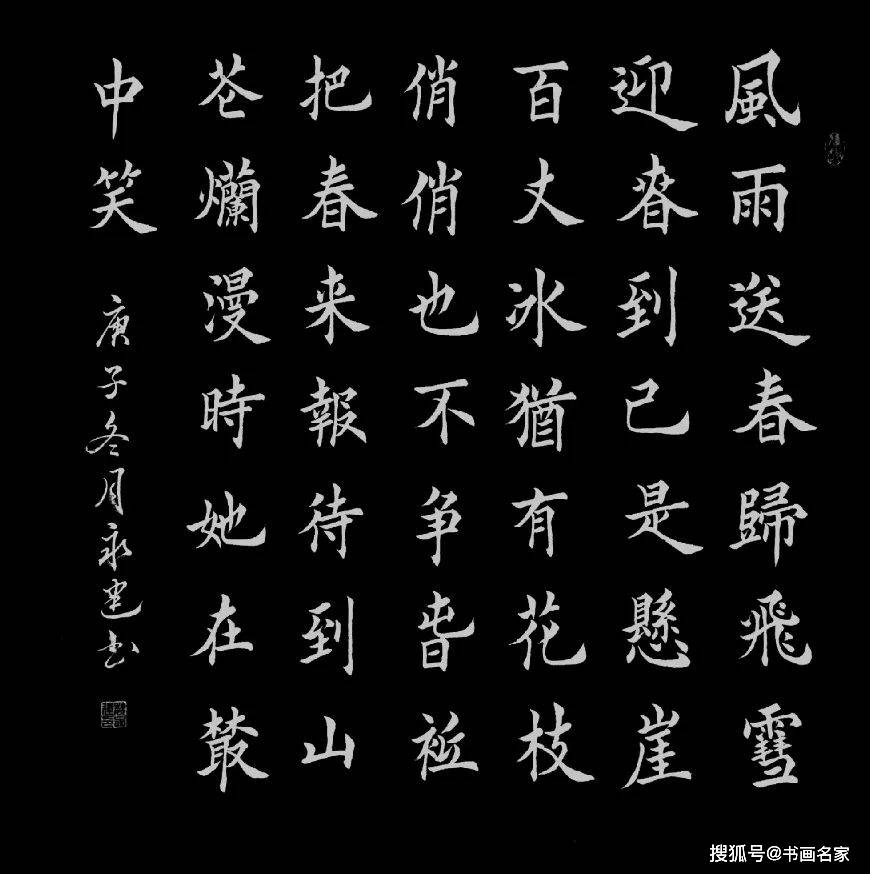 風雨送春歸飛雪
迎春到已是懸崖
百丈冰猶有花枝
俏俏也不争旾衹
把春来報待到山
芲爛漫時她在叢
中笑
庚子冬月永建书
搜狐号@书画名家